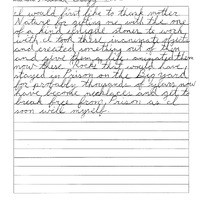 I would first like to thank mother
Nature for gifting me with the one
of a kind unique stones to work
with. I took these inanimate objects
and created something out of them
and gave them a life, animated them
now these "Rocks" that would have
stayed in Prison on the Big yard
for probably thousands of years now
have become necklaces and get to
break free from Prison as I
soon will myself.